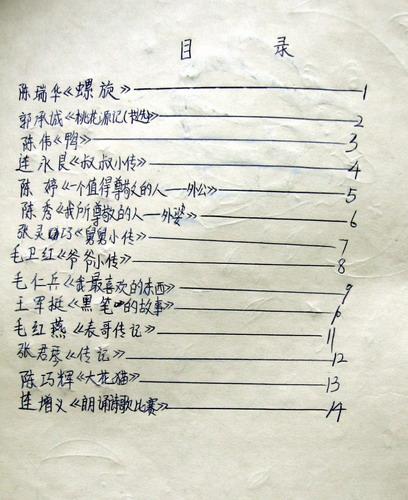 目 录
陈瑞华《螺旋》——1
郭承城《桃花源记(节选)》——2
陈伟《鸭》——3
连永良《叔叔小传》——4
陈婷《一个值得尊敬的人——外公》——5
陈秀《我所尊敬的人——外婆》——6
张灵巧《舅舅小传》——7
毛卫红《爷爷小传》——8
毛仁兵《我最喜欢的东西》——9
王军挺《黑笔的故事》——10
毛红燕《表哥传记》——11
张君《传记》——12
陈巧辉《大花猫》——13
连增义《朗诵诗歌比赛》——14